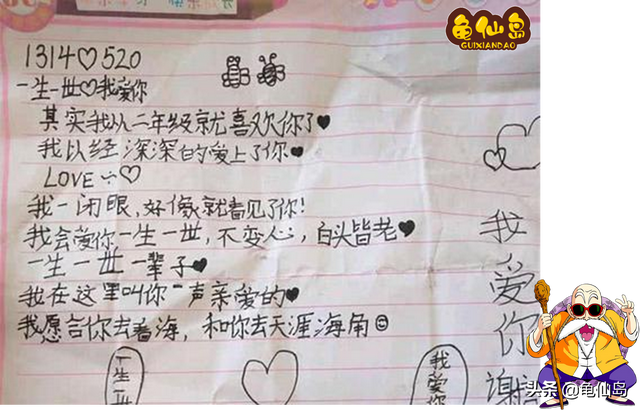 龟仙岛
GUIXIANDAO
1314♡520
一生一世♡我爱你
其实我从二年级就喜欢你了♥
我以经深深白的爱上了你♥
LOVE
我一闭眼,好像就看见了你!
我会爱你一生一世,不变心,白头皆老♥
一生一世一辈子♥
我在这里叫你一声亲爱的♥
我愿言你去看海,和你去天涯海角☺
一生世
我爱你
我爱你谢
头条@龟仙岛